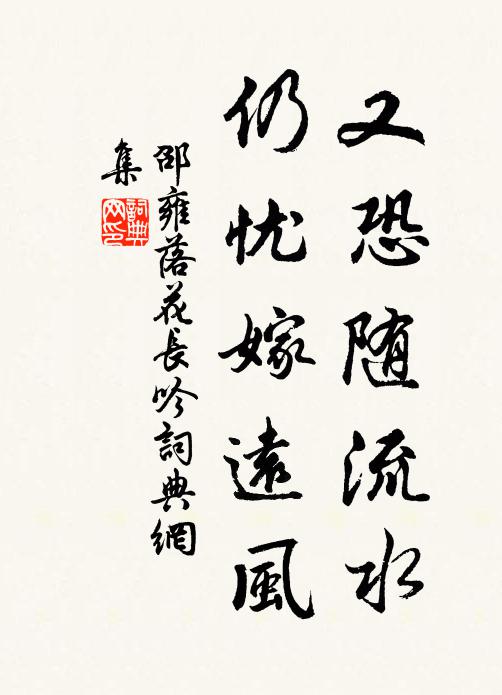 又恐随流水
仍忧嫁遠風
邵雍落花長吟詞典網
集
詞典
网印